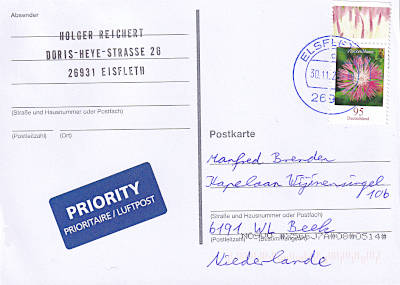 Absender
HOLGER REICHERT
DORIS-HEYE-STRASSE 26
26931 EISFLETH
(Straße und Hausnummer oder Postfach)
(Postleitzahl) (Ort)
PRIORITY
PRIORITAIRE / LUFTPOST
ELSFLET
30.11.2
269
95
Deutschland
Postkarte
Manfred Brenden
Kapelaan
/10b
(Straße und Hausnummer oder Postfach)
6191 Beek
(Postleitzahl) (Bestimmungsort)
Niederlande